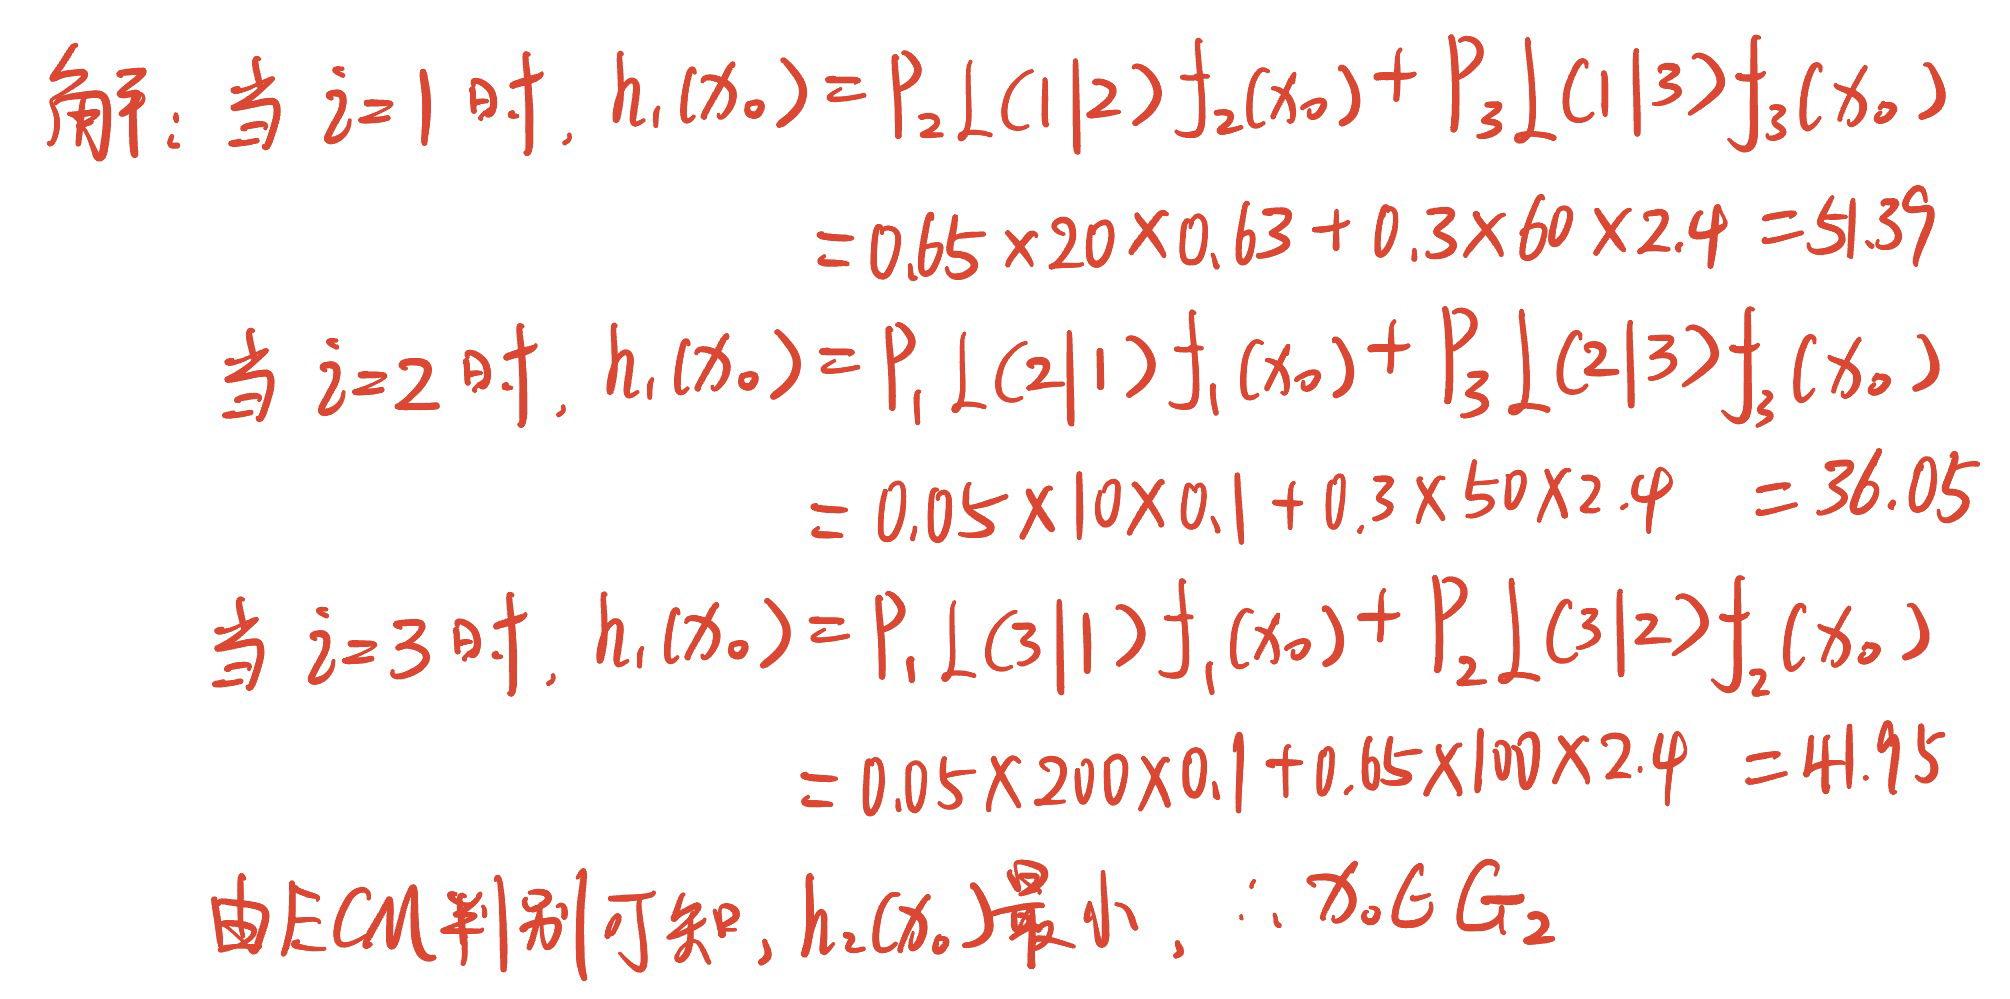 解：当 i=1 时, h₁(x₀) = P₂L(1|2)f₂(x₀) + P₃L(1|3)f₃(x₀)
= 0.65×20×0.63 + 0.3×60×2.4 = 51.39
当 i=2 时, h₁(x₀) = P₁L(2|1)f₁(x₀) + P₃L(2|3)f₃(x₀)
= 0.05×10×0.1 + 0.3×50×2.4 = 36.05
当 i=3 时, h₁(x₀) = P₁L(3|1)f₁(x₀) + P₂L(3|2)f₂(x₀)
= 0.05×200×0.1 + 0.65×100×2.4 = 41.95
由ECM判别可知, h₂(x₀)最小, ∴ x₀∈G₂